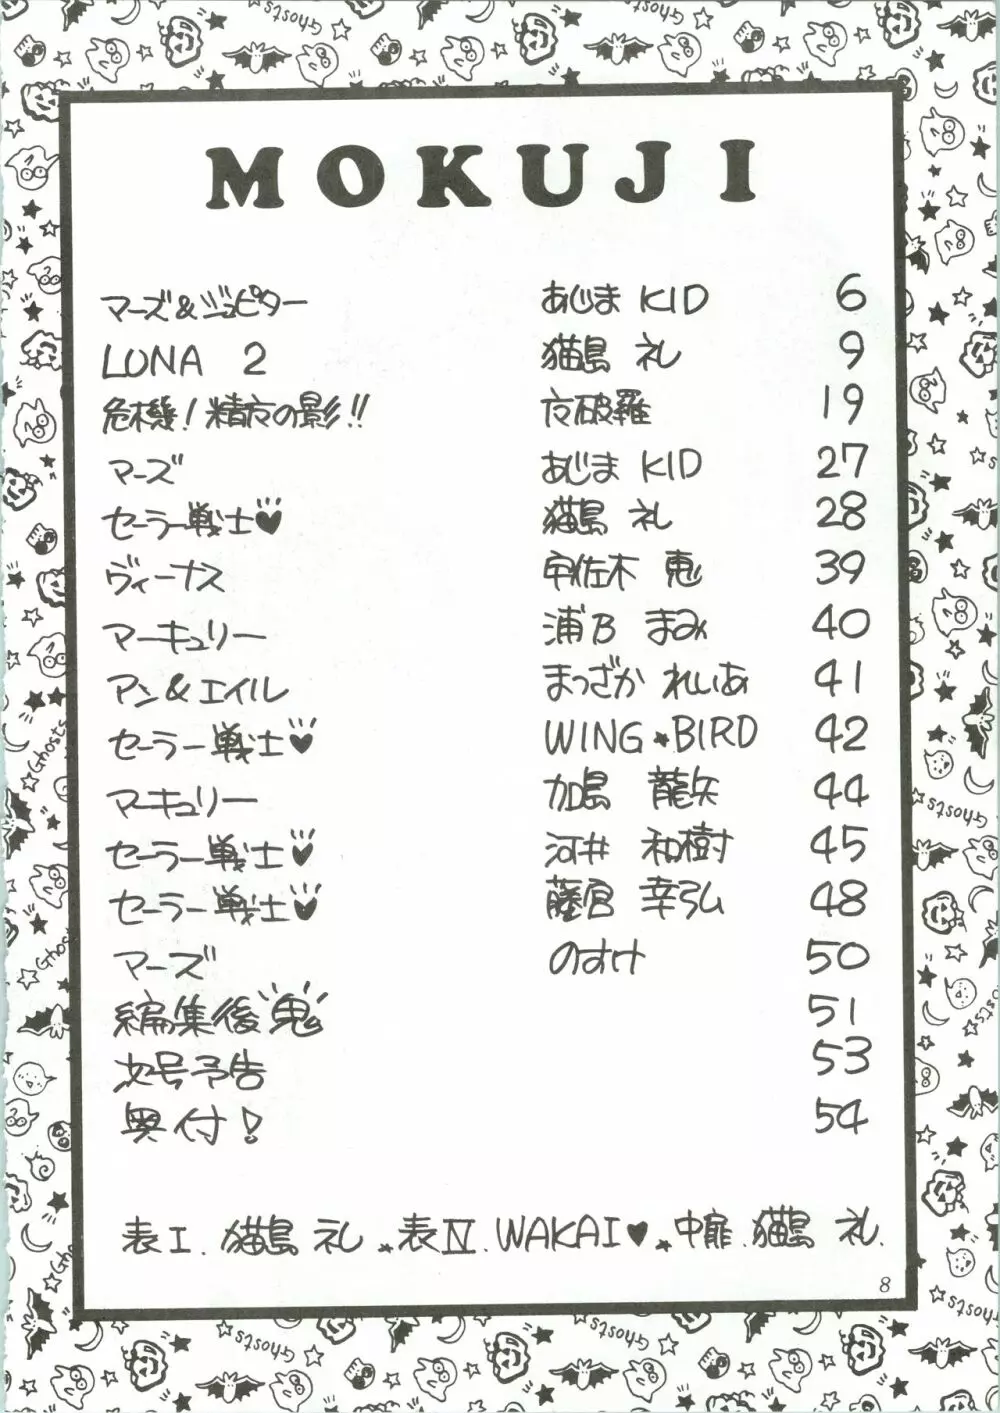 MOKUJI
マーズ&ジュピター あじま KID 6
LUNA 2 猫島 礼 9
危機!精友の影!! 夜破羅 19
マーズ あじま KID 27
セーラー戦士♥ 猫島 礼 28
ヴィーナス 宇佐木 恵 39
マーキュリー 浦乃 まみ 40
アン&エイル まつざか れいあ 41
セーラー戦士♥ WING★BIRD 42
マーキュリー 加島 龍矢 44
セーラー戦士♥ 河井 和樹 45
セーラー戦士♥ 藤宮 幸弘 48
マーズ のすけ 50
編集後鬼 51
次号予告 53
奥付! 54
表I.猫島 礼★表IV.WAKAI♥★中扉.猫島 礼.
8
Ghosts
Ghosts
Ghosts
Ghosts
Ghosts
Ghosts